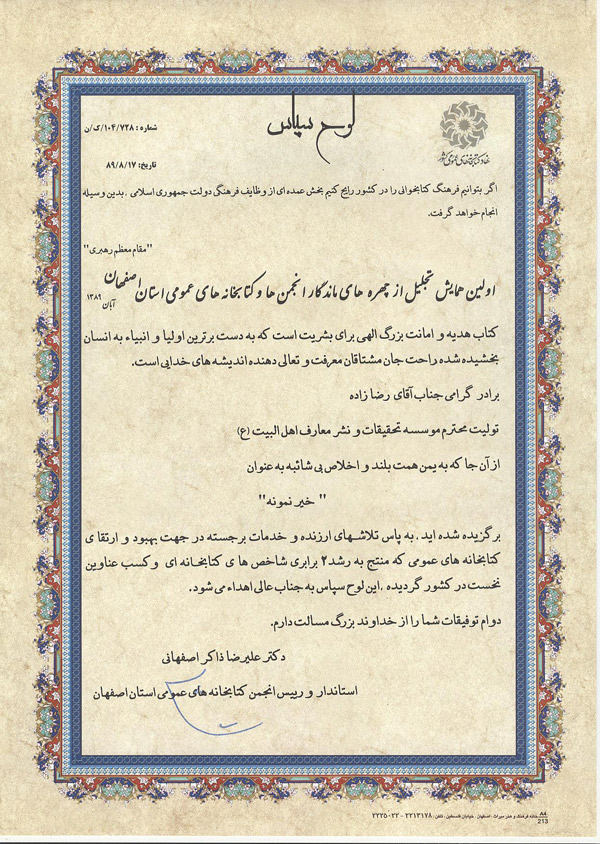 لوح سپاس
نهاد کتابخانه‌های عمومی کشور
شماره : ۱۰۴/۷۲۸/ک/ن
تاریخ: ۸۹/۸/۱۷
اگر بتوانیم فرهنگ کتابخوانی را در کشور رایج کنیم بخش عمده ای از وظایف فرهنگی دولت جمهوری اسلامی ، بدین وسیله
انجام خواهد گرفت.
"مقام معظم رهبری"
اولین همایش تجلیل از چهره های ماندگار انجمن ها و کتابخانه های عمومی استان اصفهان
آبان ۱۳۸۹
کتاب هدیه و امانت بزرگ الهی برای بشریت است که به دست برترین اولیا و انبیاء به انسان
بخشیده شده راحت جان مشتاقان معرفت و تعالی دهنده اندیشه های خدایی است.
برادر گرامی جناب آقای رضا زاده
تولیت محترم موسسه تحقیقات و نشر معارف اهل البیت (ع)
از آن جا که به یمن همت بلند و اخلاص بی شائبه به عنوان
" خیر نمونه"
برگزیده شده اید ، به پاس تلاشهای ارزنده و خدمات برجسته در جهت بهبود و ارتقا ی
کتابخانه های عمومی که منتج به رشد ۲ برابری شاخص ها ی کتابخانه ای و کسب عناوین
نخست در کشور گردیده ، این لوح سپاس به جناب عالی اهداء می شود.
دوام توفیقات شما را از خداوند بزرگ مسالت دارم.
دکتر علیرضا ذاکر اصفهانی
استاندار و رییس انجمن کتابخانه های عمومی استان اصفهان
خانه فرهنگ و هنر میراث ، اصفهان ، خیابان فلسطین ، تلفن: ۲۲۱۳۱۷۸ - ۲۲۲۵۰۲۲
A4
213